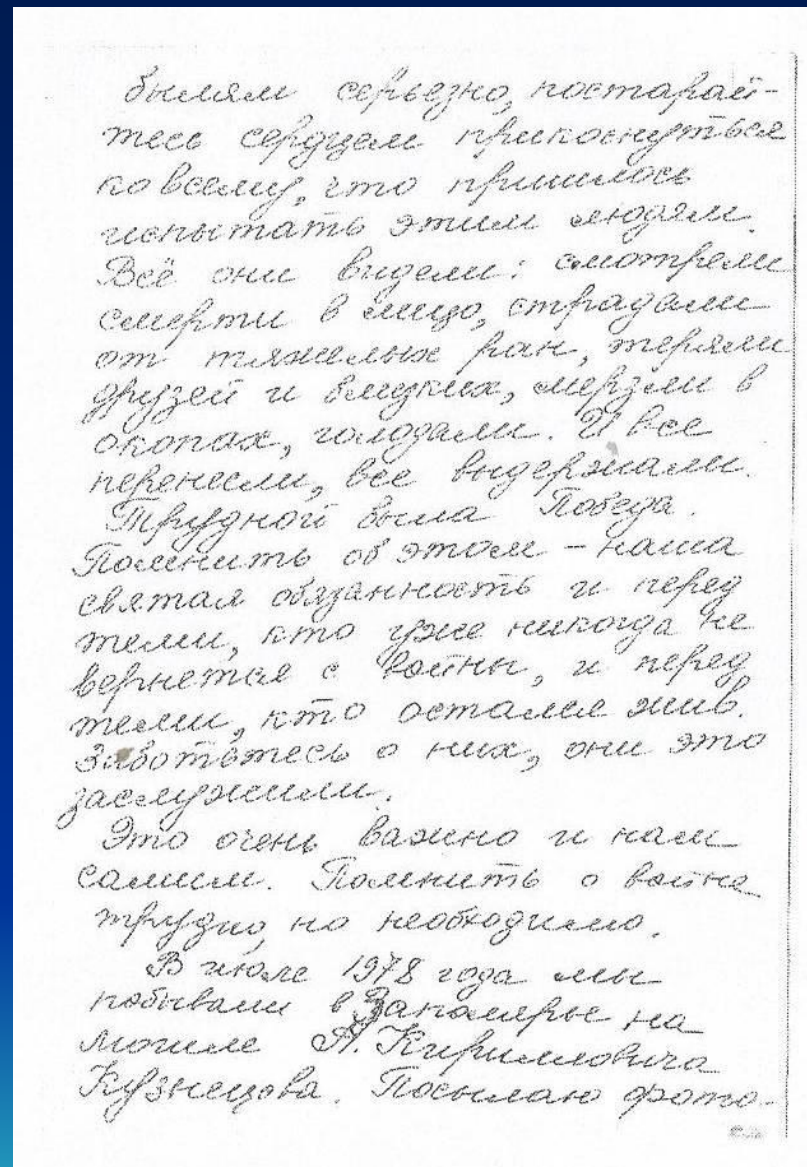 былям серьезно, постарай-
тесь сердцем прикоснуться
ко всему, что пришлось
испытать этим людям.
Всё они видели: смотрели
смерти в лицо, страдали
от тяжелых ран, теряли
друзей и близких, мерзли в
окопах, голодали. И все
перенесли, все выдержали.
Трудной была Победа.
Помнить об этом – наша
святая обязанность и перед
теми, кто уже никогда не
вернется с войны, и перед
теми, кто остался жив.
Заботьтесь о них, они это
заслужили.
Это очень важно и нам
самим. Помнить о войне
трудно, но необходимо.
В июле 1978 года мы
побывали в Заполярье на
могиле А. Кирилловича
Кузнецова. Посылаю фото-